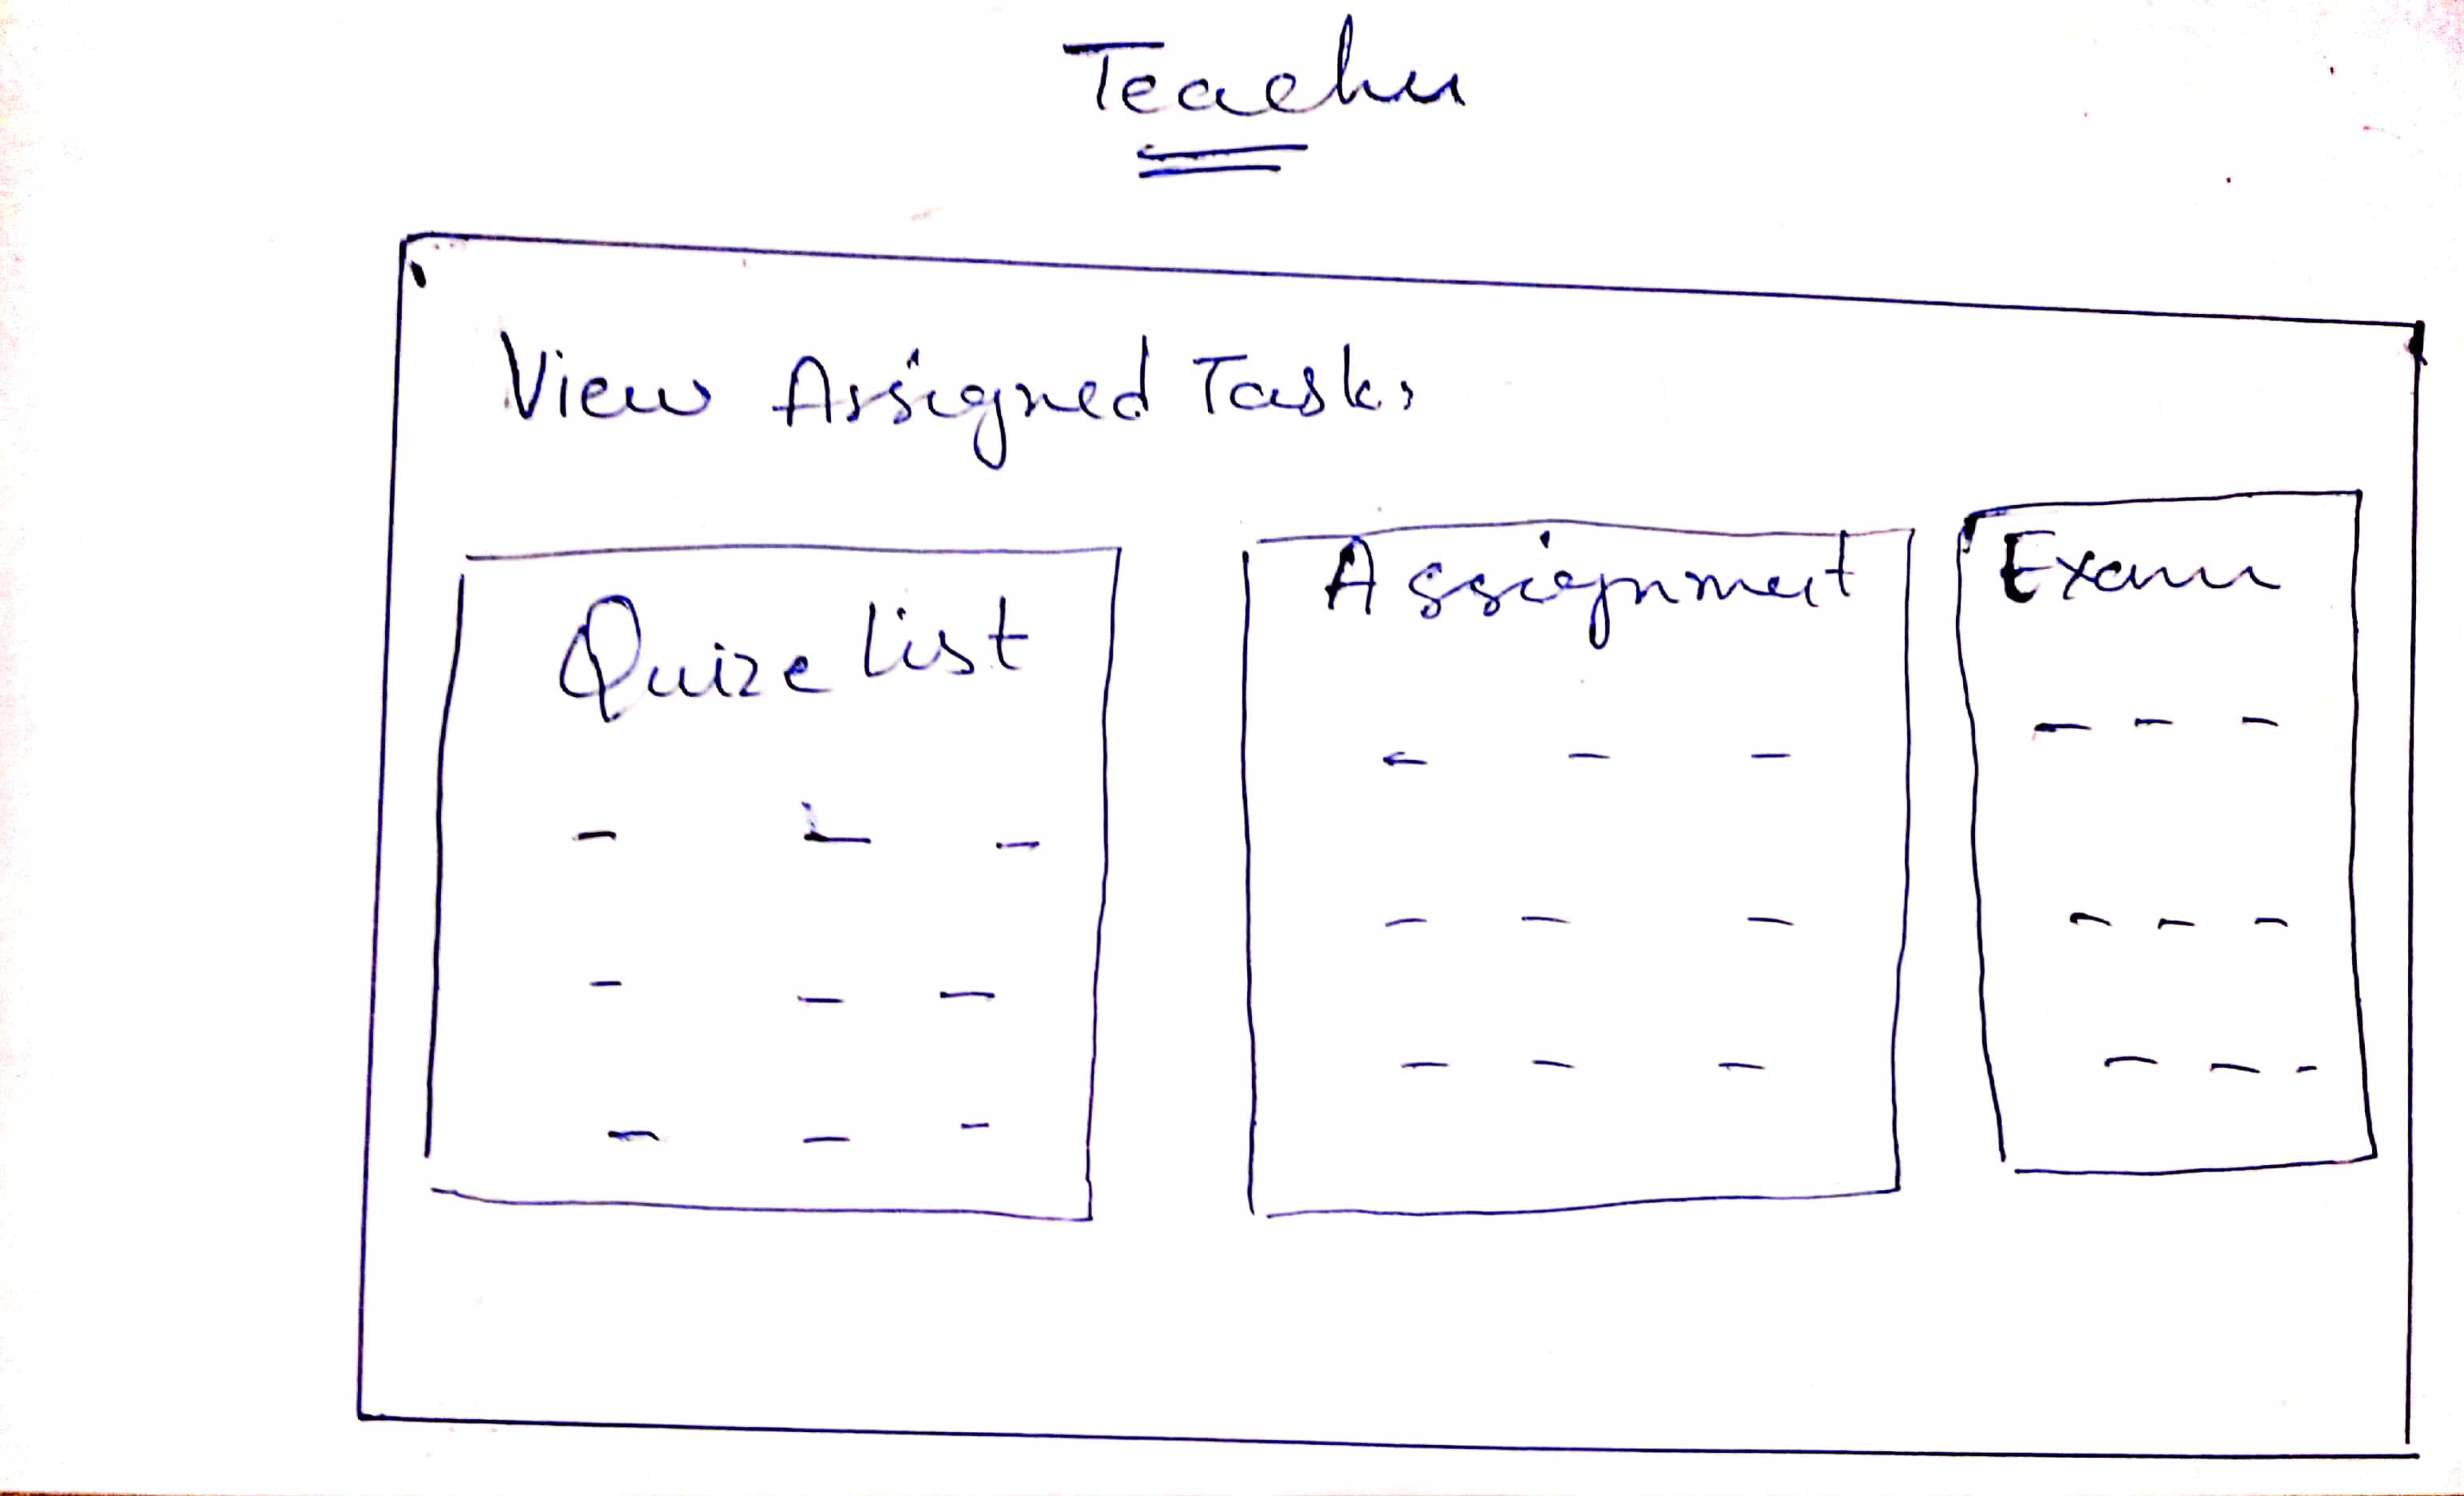 Teacher
View Assigned Tasks
Quize list
Assignment
Exam
- - -
- - -
- - -
- - -
- - -
- - -
- - -
- - -
- - -